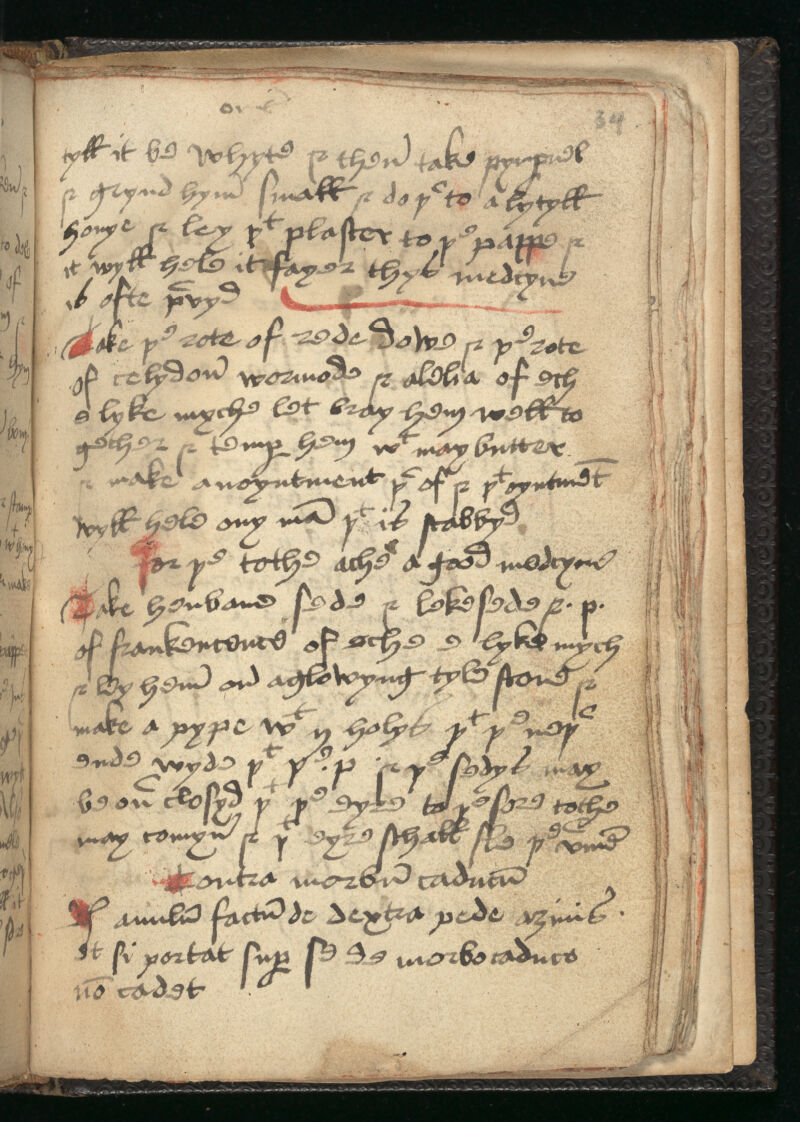 34
tyll it be whyte & then take pympnel
& grynd hym small & do þerto a lytyll
honye & ley þt plaster to þe pappe &
it wyll hele it fayer thys medcyne
is ofte pvyd
Take þe rote of rede dowe & þe rote
of celydon wormode & of ech
e lyke myche let bray hem well to
gether & temp hem wt may butter
& make a noyntment þr of & þt oyntmēt
wyll hele ony mā þt is scabbyd
For þe tothe ache a good medcyne
Take henbane sede & lekesede & . p .
of frankencence of eche e lyke mych
& ley hem on a glowyng tyle stone &
make a pype wt ij holys þt þe neþer
ende wyde þt þe . p . & þe sedys may
be on closyd þt þe eyre to þe sore tothe
may comyn & þt eyre schall sle þe
Contra morbū caducū
anulū factū de dextra pede azinis .
et si portat sup se de morbo caduco
nō cadet